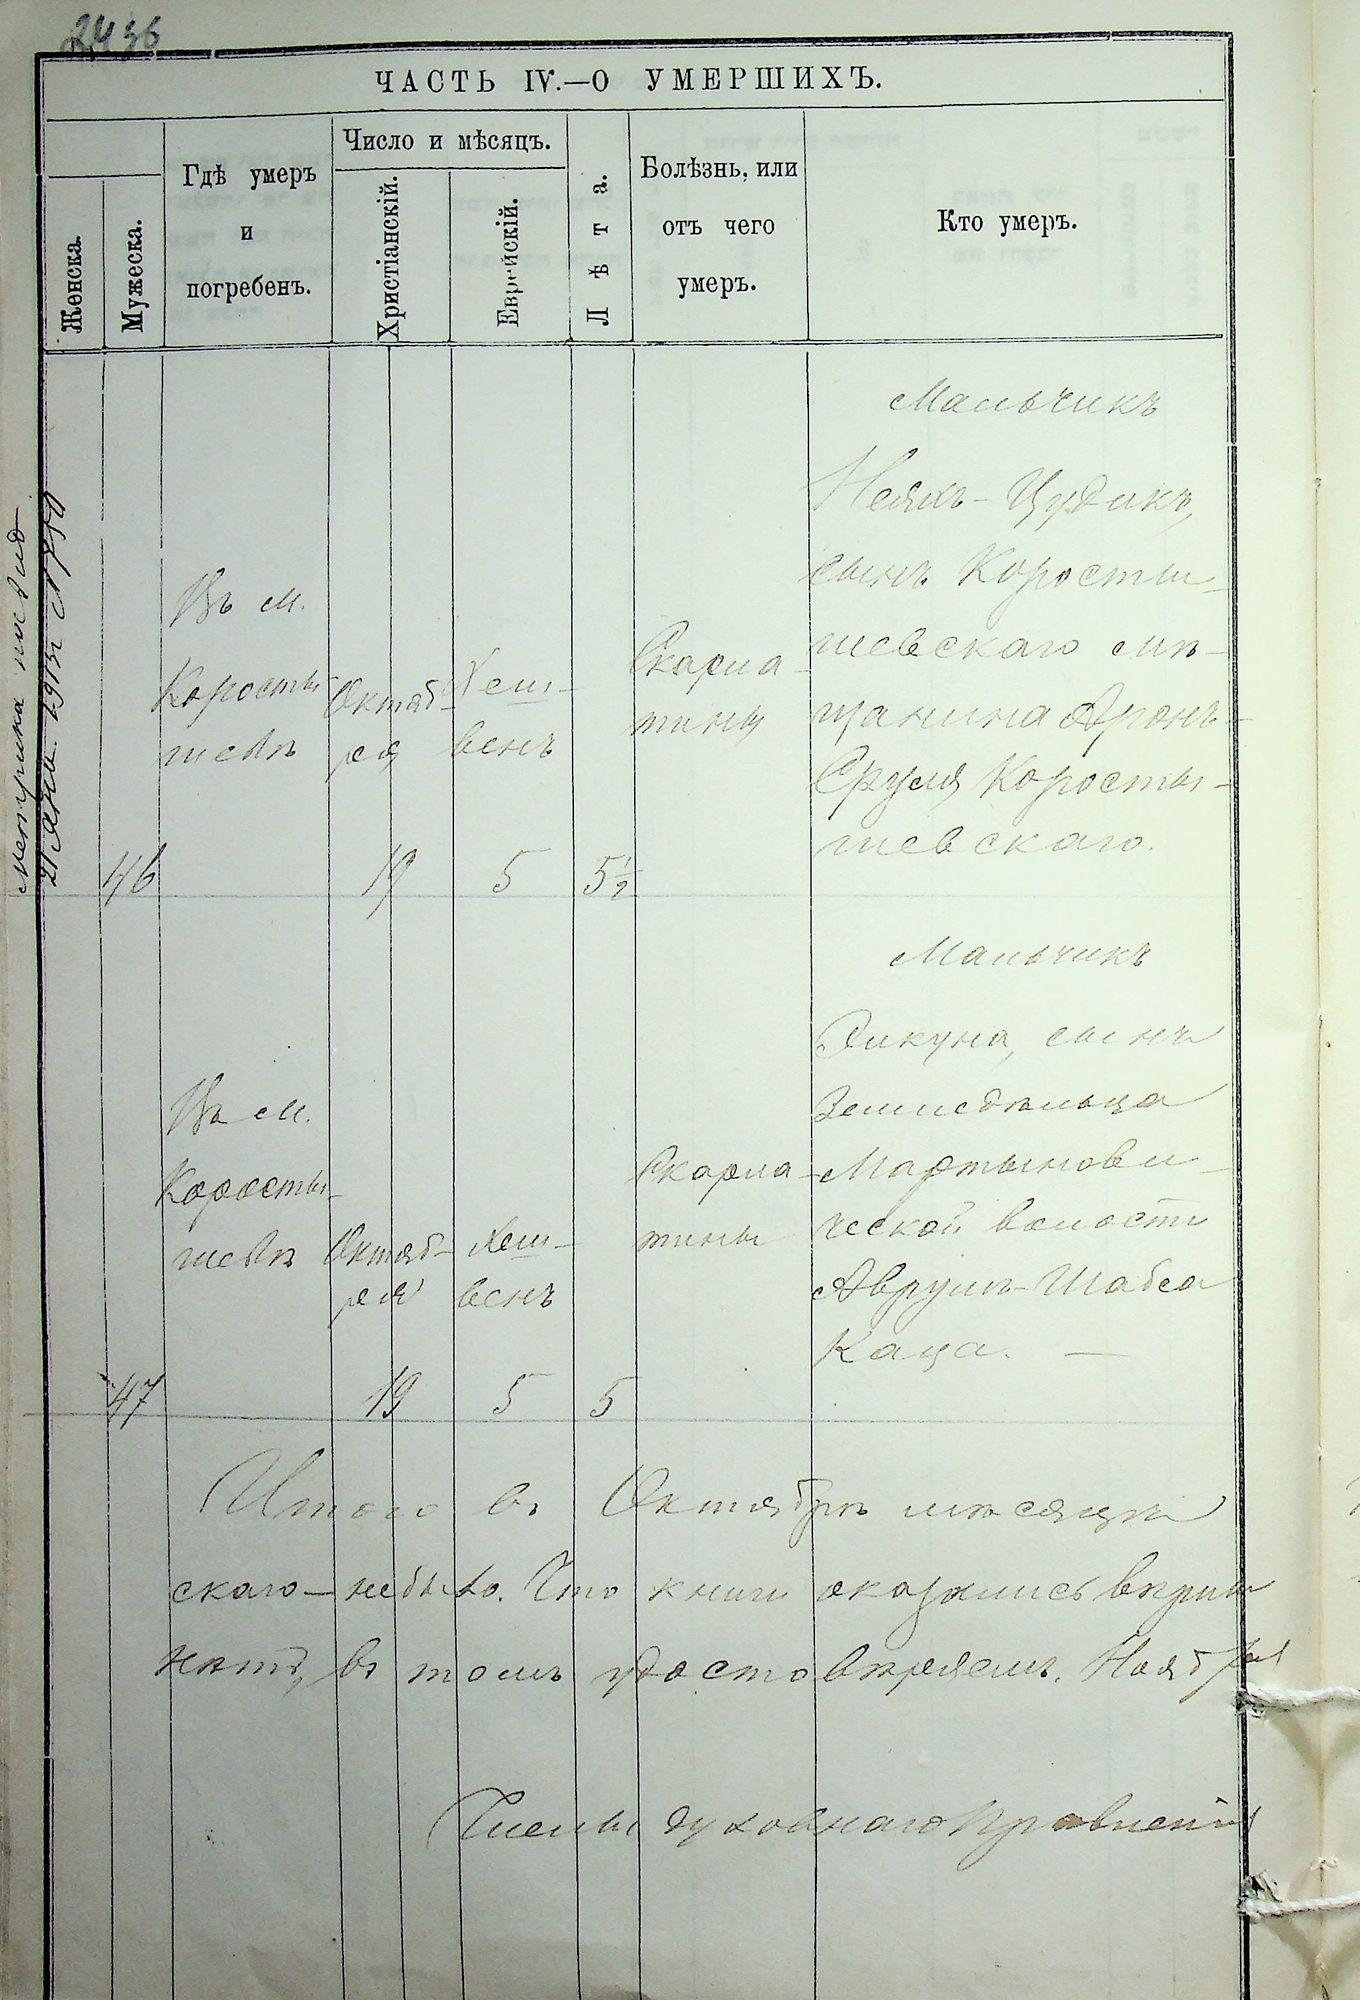 2436
ЧАСТЬ IV.—О УМЕРШИХЪ.
Женска.
Мужеска.
Гдѣ умеръ
и
погребенъ.
Число и мѣсяцъ.
Христіанскій.
Еврейскій.
Лѣта.
Болѣзнь, или
отъ чего
умеръ.
Кто умеръ.
Метрика
21 Янв. 1913г № 750
46
Въ м.
Коросты-
шевѣ
Октяб-
ря
19
Хеш-
венъ
5
5½
Скарла-
тины
Мальчикъ
Цудикъ,
сынъ Коросты-
шевскаго мѣ-
щанина Аронъ-
Сруля Коросты-
шевскаго.
47
Въ м.
Коросты-
шевѣ
Октяб-
ря
19
Хеш-
венъ
5
5
Скарла-
тины
Мальчикъ
Эликуна, сынъ
Земледѣльца
Мартынови-
ческой волости
Аврумъ-Шабса
Каца. —
Итого въ Октябрѣ мѣсяцѣ
скаго — небыло. Что книги оказались вѣрны
въ томъ удостовѣряемъ. Ноября
Члены духовнаго Правленія